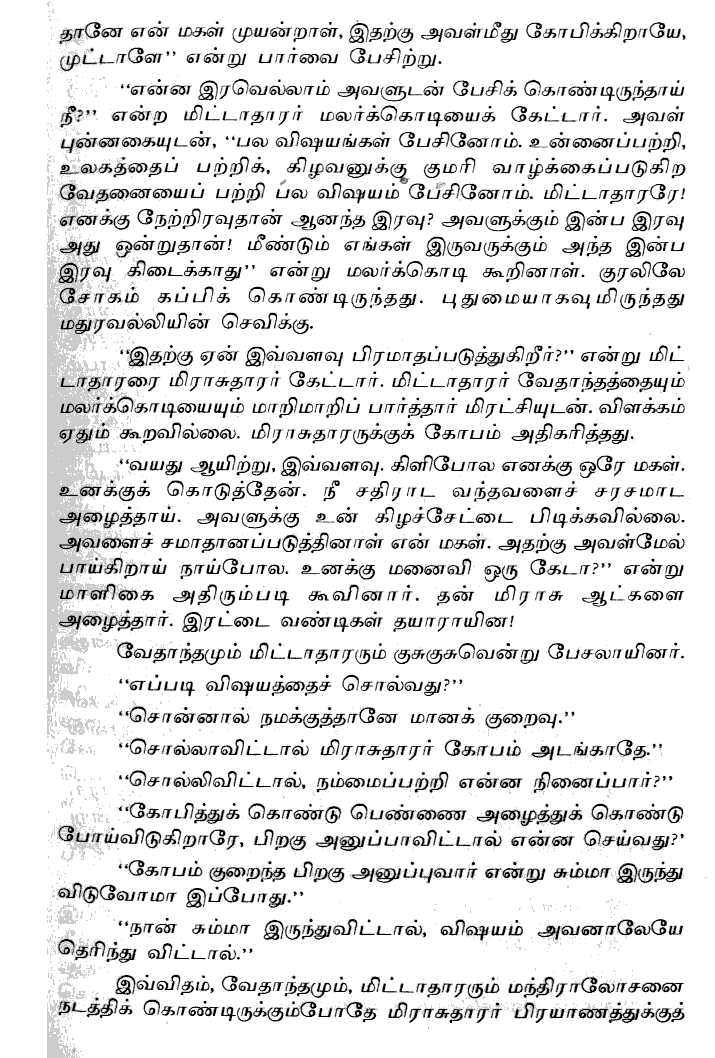 தானே என் மகள் முயன்றாள், இதற்கு அவள்மீது கோபிக்கிறாயே,
முட்டாளே'' என்று பார்வை பேசிற்று.
''என்ன இரவெல்லாம் அவளுடன் பேசிக் கொண்டிருந்தாய்
நீ?'' என்ற மிட்டாதாரர் மலர்க்கொடியைக் கேட்டார். அவள்
புன்னகையுடன், ''பல விஷயங்கள் பேசினோம். உன்னைப்பற்றி,
உலகத்தைப் பற்றிக், கிழவனுக்கு குமரி வாழ்க்கைப்படுகிற
வேதனையைப் பற்றி பல விஷயம் பேசினோம். மிட்டாதாரரே!
எனக்கு நேற்றிரவுதான் ஆனந்த இரவு? அவளுக்கும் இன்ப இரவு
அது ஒன்றுதான்! மீண்டும் எங்கள் இருவருக்கும் அந்த இன்ப
இரவு கிடைக்காது'' என்று மலர்க்கொடி கூறினாள். குரலிலே
சோகம் கப்பிக் கொண்டிருந்தது. புதுமையாகவுமிருந்தது
மதுரவல்லியின் செவிக்கு.
''இதற்கு ஏன் இவ்வளவு பிரமாதப்படுத்துகிறீர்?'' என்று மிட்
டாதாரரை மிராசுதாரர் கேட்டார். மிட்டாதாரர் வேதாந்தத்தையும்
மலர்க்கொடியையும் மாறிமாறிப் பார்த்தார் மிரட்சியுடன். விளக்கம்
ஏதும் கூறவில்லை. மிராசுதாரருக்குக் கோபம் அதிகரித்தது.
''வயது ஆயிற்று, இவ்வளவு. கிளிபோல எனக்கு ஒரே மகள்.
உனக்குக் கொடுத்தேன். நீ சதிராட வந்தவளைச் சரசமாட
அழைத்தாய். அவளுக்கு உன் கிழச்சேட்டை பிடிக்கவில்லை.
அவளைச் சமாதானப்படுத்தினாள் என் மகள். அதற்கு அவள்மேல்
பாய்கிறாய் நாய்போல. உனக்கு மனைவி ஒரு கேடா?'' என்று
மாளிகை அதிரும்படி கூவினார். தன் மிராசு ஆட்களை
அழைத்தார். இரட்டை வண்டிகள் தயாராயின!
வேதாந்தமும் மிட்டாதாரரும் குசுகுசுவென்று பேசலாயினர்.
''எப்படி விஷயத்தைச் சொல்வது?''
''சொன்னால் நமக்குத்தானே மானக் குறைவு.''
''சொல்லாவிட்டால் மிராசுதாரர் கோபம் அடங்காதே.''
''சொல்லிவிட்டால், நம்மைப்பற்றி என்ன நினைப்பார்?''
''கோபித்துக் கொண்டு பெண்ணை அழைத்துக் கொண்டு
போய்விடுகிறாரே, பிறகு அனுப்பாவிட்டால் என்ன செய்வது?'
''கோபம் குறைந்த பிறகு அனுப்புவார் என்று சும்மா இருந்து
விடுவோமா இப்போது.''
''நான் சும்மா இருந்துவிட்டால், விஷயம் அவனாலேயே
தெரிந்து விட்டால்.''
இவ்விதம், வேதாந்தமும், மிட்டாதாரரும் மந்திராலோசனை
நடத்திக் கொண்டிருக்கும்போதே மிராசுதாரர் பிரயாணத்துக்குத்